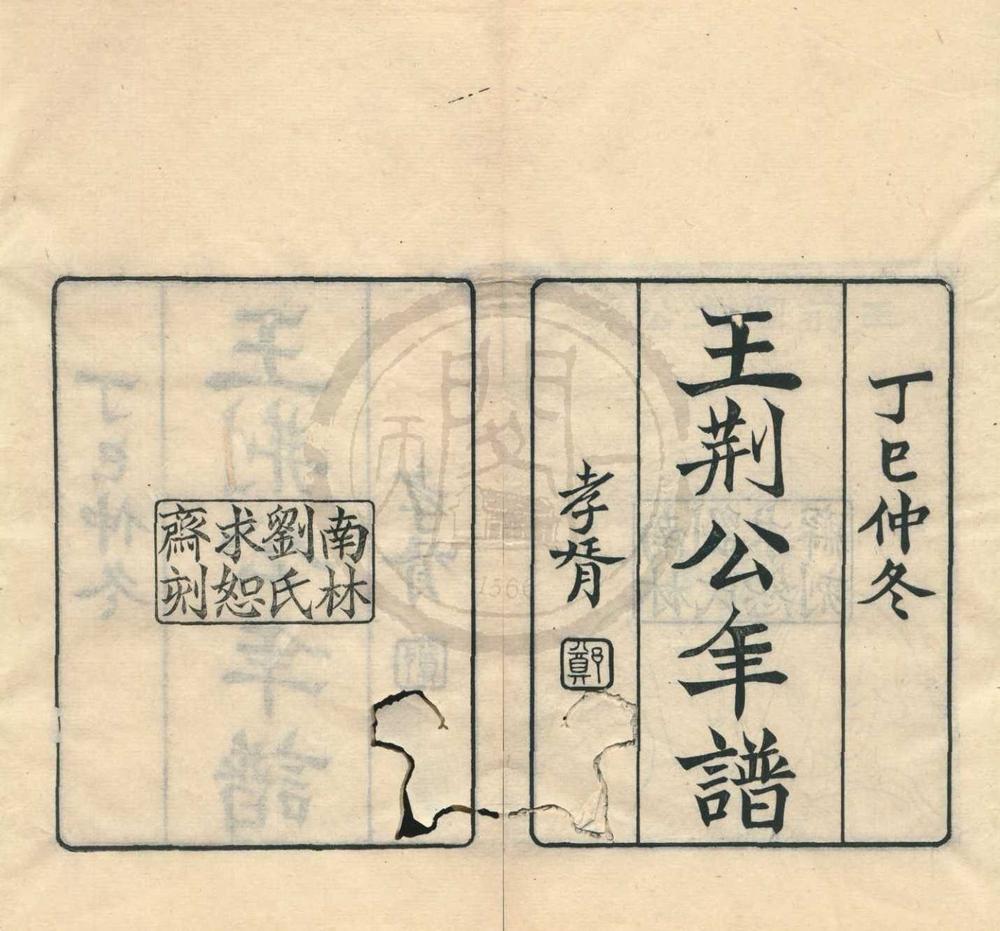 丁巳仲冬
王荆公年譜
孝胥
鄭
南林
劉氏
求恕
齋刻
1566